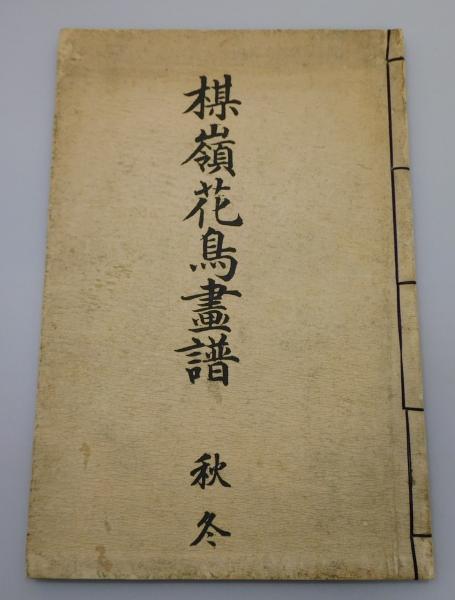 楳嶺花鳥畫譜
秋冬